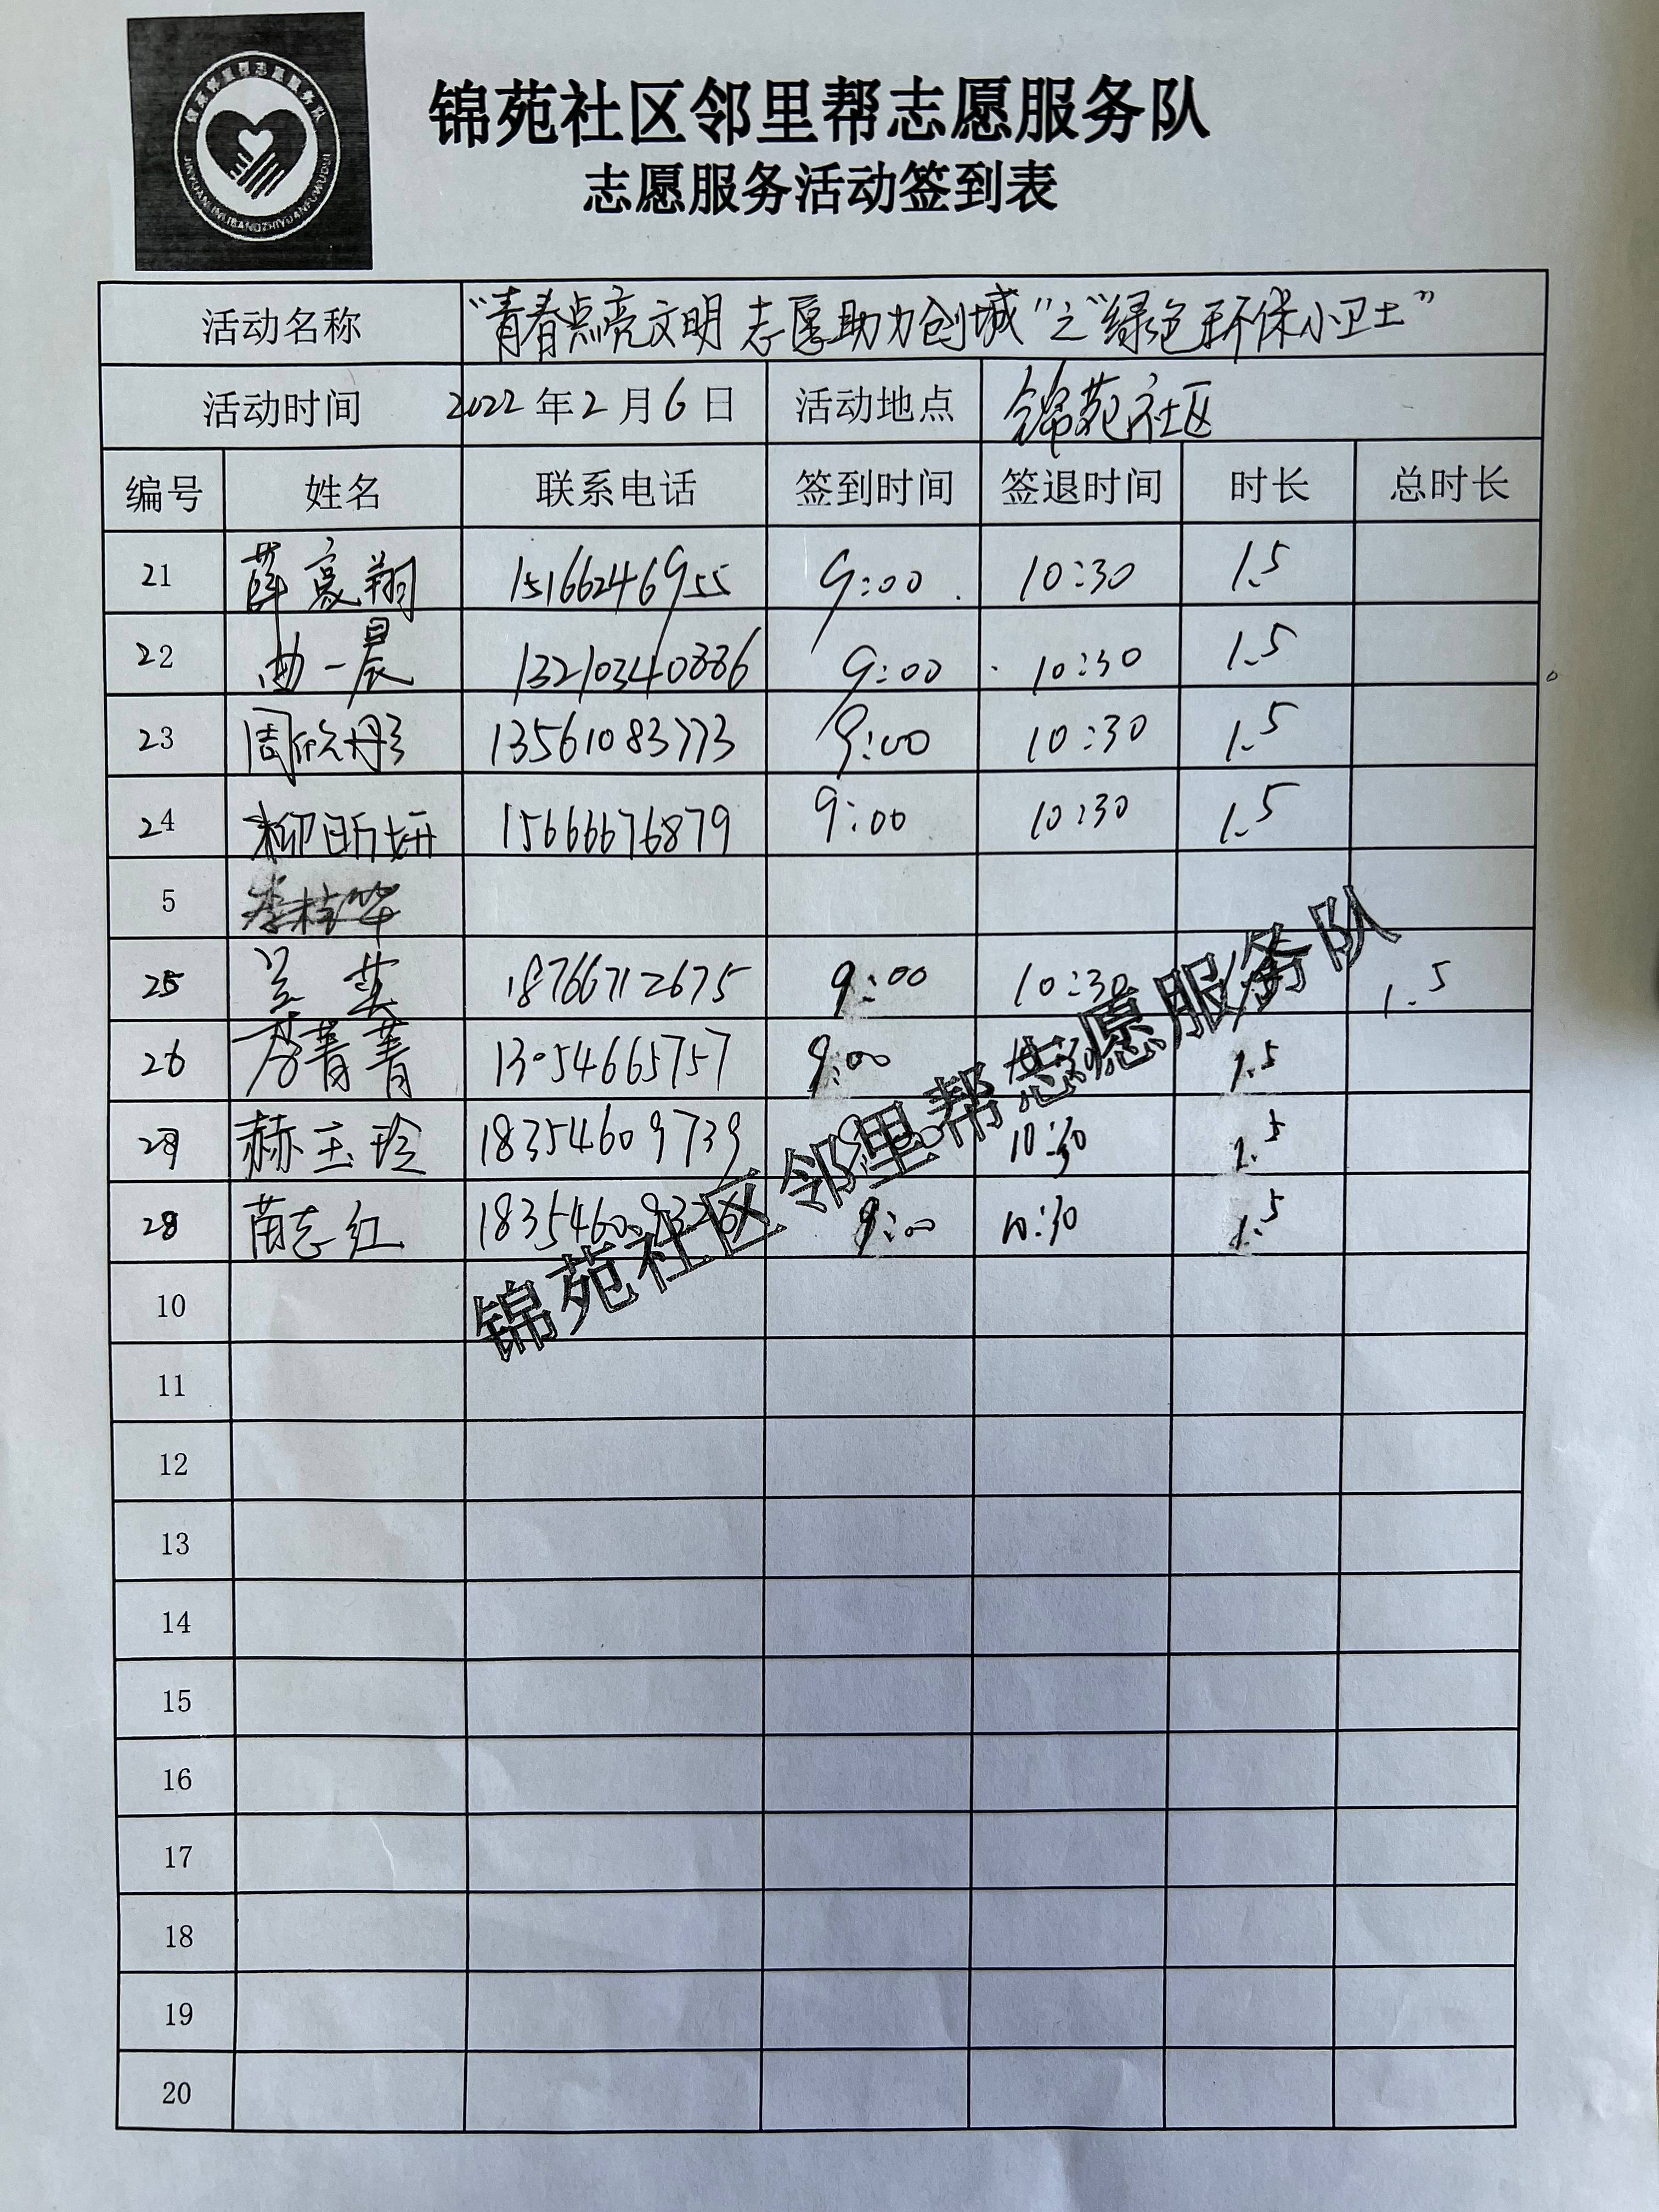 锦苑社区邻里帮志愿服务队
志愿服务活动签到表
活动名称 "青春点亮文明 志愿助力创城"之"绿色环保小卫士"
活动时间 2022年2月6日 活动地点 锦苑社区
编号 姓名 联系电话 签到时间 签退时间 时长 总时长
21 薛宸翔 15166246955 9:00 10:30 1.5
22 曲一晨 13210340886 9:00 10:30 1.5
23 周欣彤 13561083773 9:00 10:30 1.5
24 柳昕妍 15666676879 9:00 10:30 1.5
5
25 兰英 18766712675 9:00 10:30 1.5
26 李菁菁 13054665757 9:00 1.5
27 赫玉玲 18354609739 10:30 1.5
28 苗志红 9:00 10:30 1.5
锦苑社区邻里帮志愿服务队
10
11
12
13
14
15
16
17
18
19
20